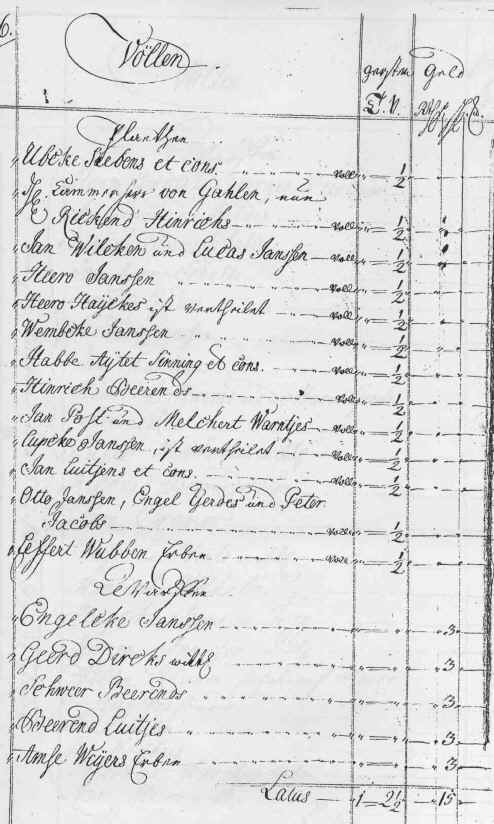 6.
Völlen
gersten Geld
T. V.
Plaetzen
Ubcke Siebens et cons. Voll " — 1/2
H. Cammerherr von Gahlen, nun
Rickend Hinrichs — Voll " — 1/2
Jan Wilcken und Lucas Janssen — Voll " — 1/2
Heero Janssen Voll " — 1/2
Heero Hayckes ist vertheilet Voll " — 1/2
Wembcke Janssen Voll " — 1/2
Habbe Aytet Sinning et cons. Voll " — 1/2
Hinrich Beerends Voll " — 1/2
Jan Post und Melchert Warntjes — Voll " — 1/2
Lupcke Janssen, ist vertheilet Voll " — 1/2
Jan Luitjens et cons. Voll " — 1/2
Otto Janssen, Engel Gerdes und Peter
Jacobs Voll " — 1/2
Leffert Wubben Erben Voll " — 1/2
Engelcke Janssen " — " 3
Geerd Dircks " — " 3
Schweer Beerends " — " 3
Beerend Luitjes " — " 3
Amse Weyers Erben " — " 3
Latus — 1 — 2 1/2 — 15